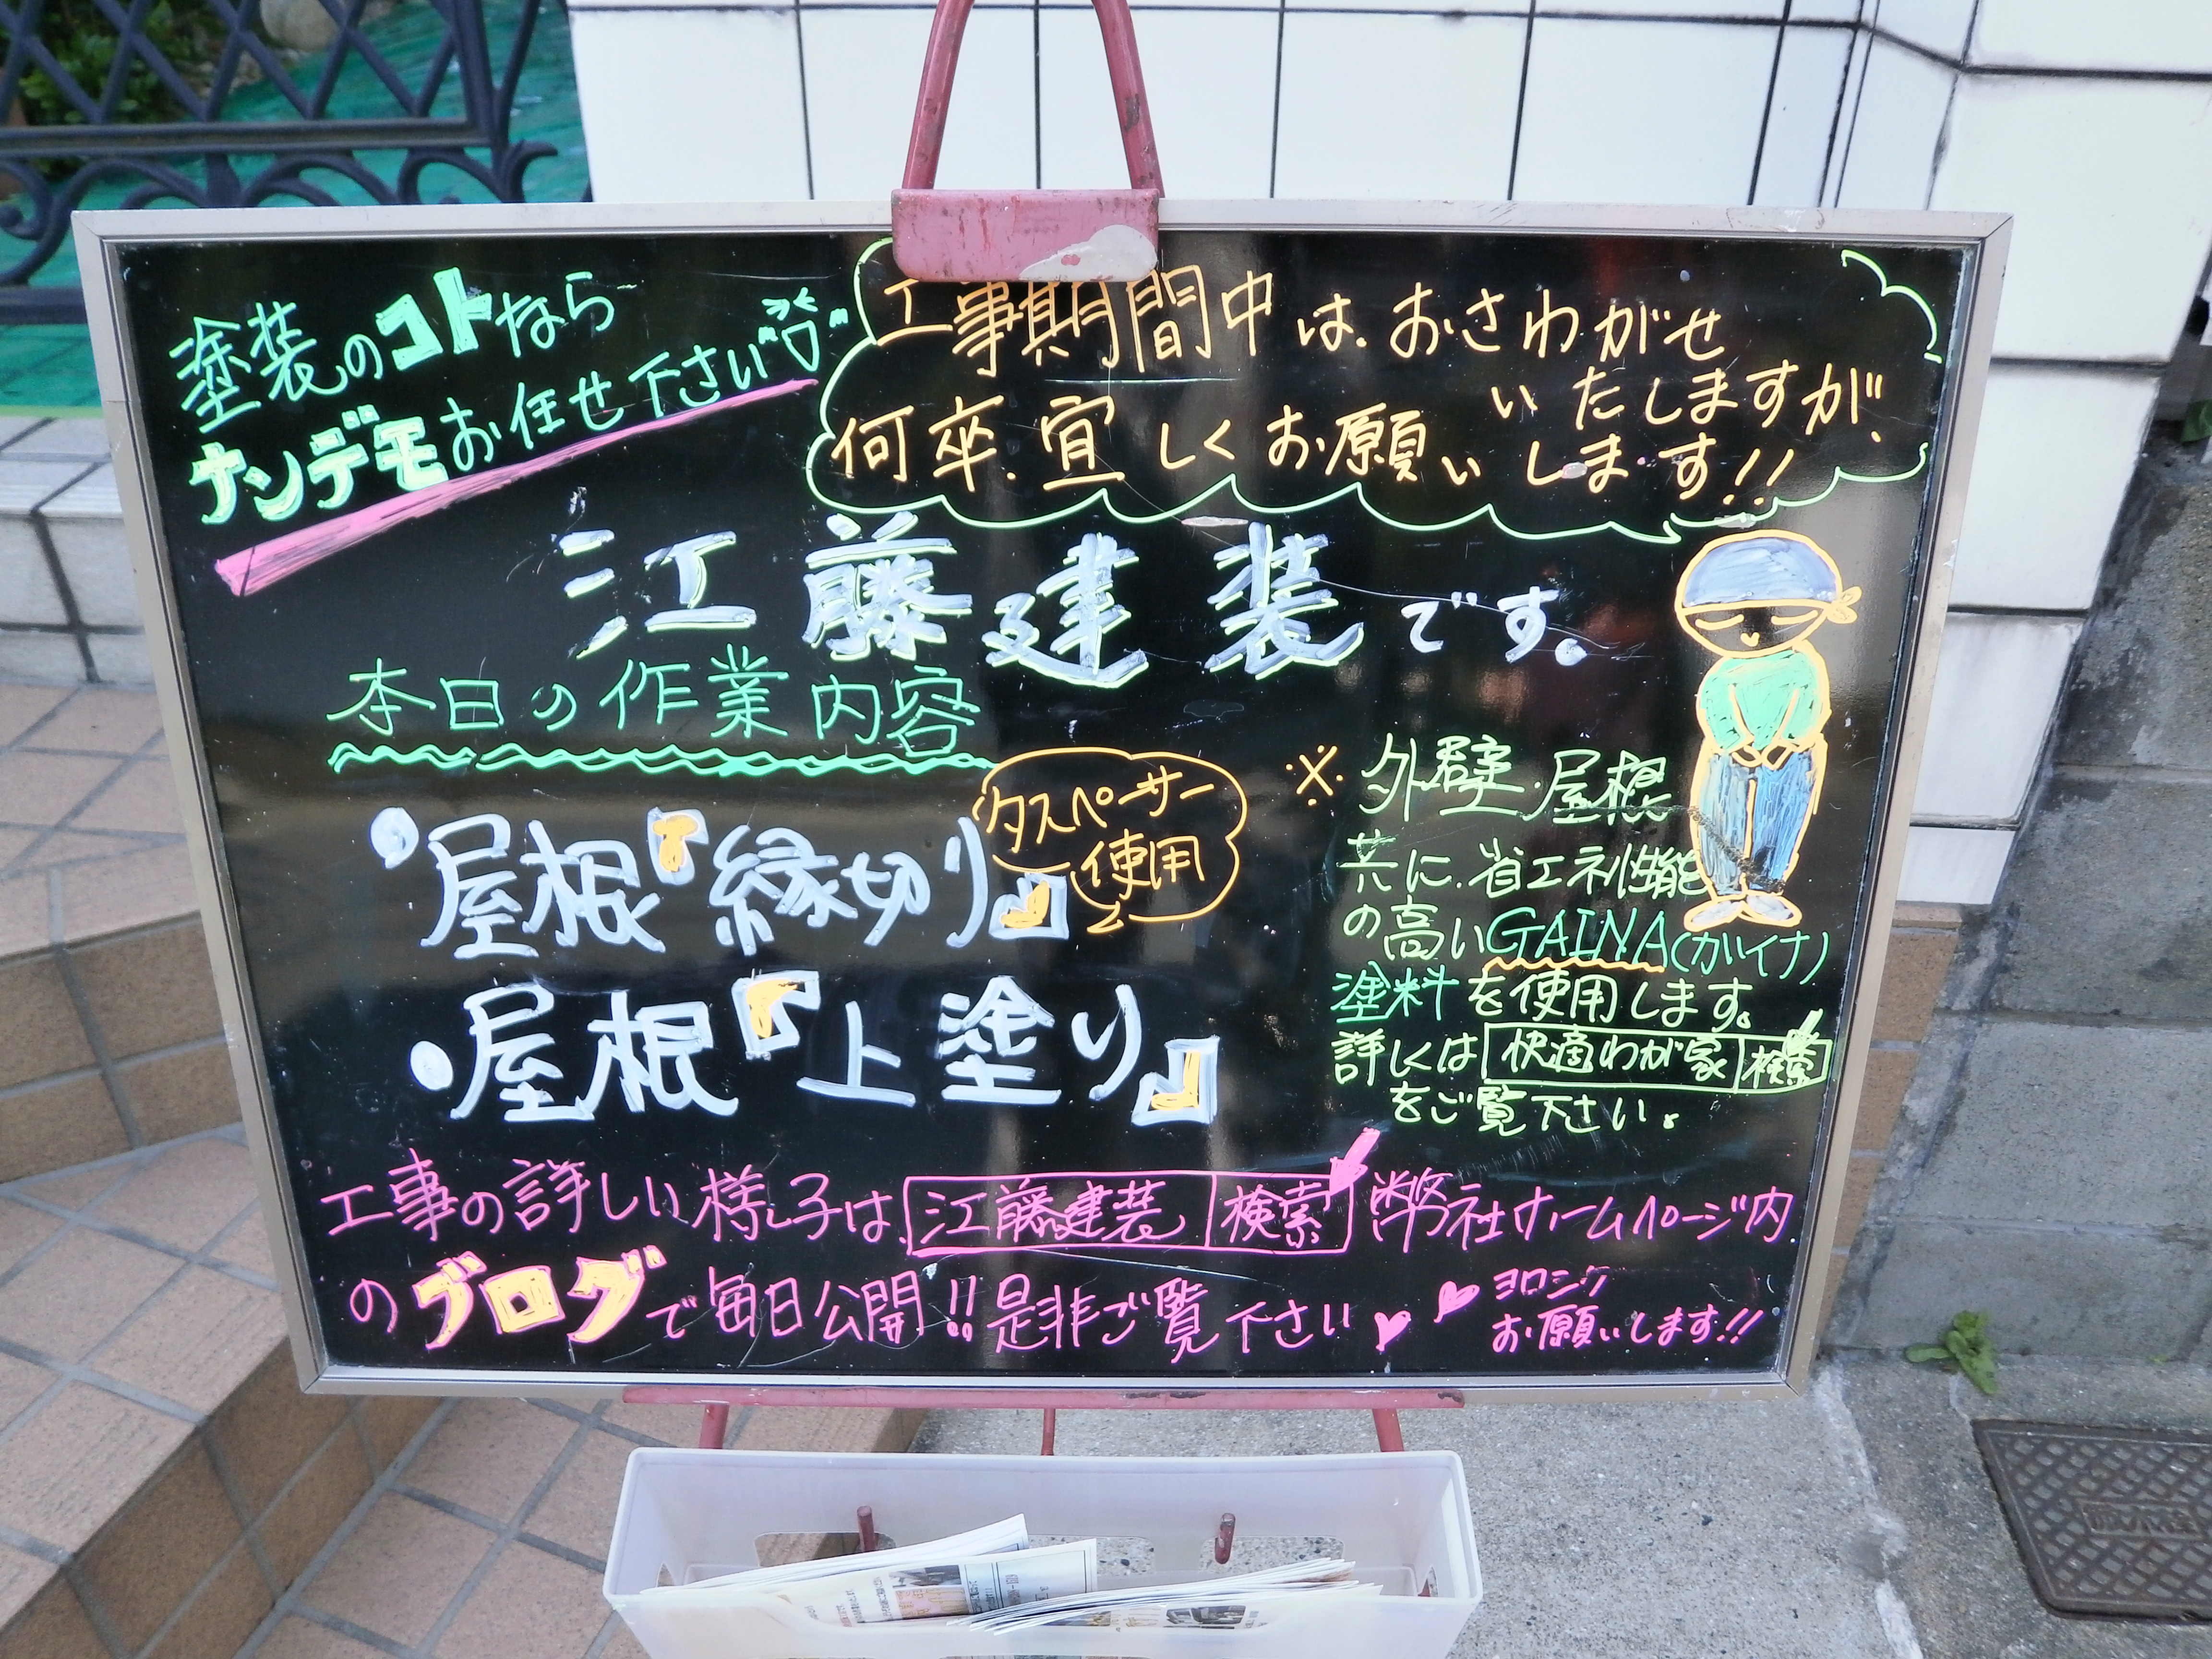 塗装のコトなら
ナンデモお任せ下さい
工事期間中は、おさわがせ
いたしますが、
何卒、宜しくお願いします!!
江藤建装です。
本日の作業内容
・屋根『縁切り』
タスペーサー
使用
・屋根『上塗り』
※外壁・屋根
共に、省エネ性能
の高いGAINA(ガイナ)
塗料を使用します。
詳しくは 快適わが家 検索
をご覧下さい。
工事の詳しい様子は、江藤建装 検索 弊社ホームページ内
のブログで毎日公開!!是非ご覧下さい
ヨロシク
お願いします!!